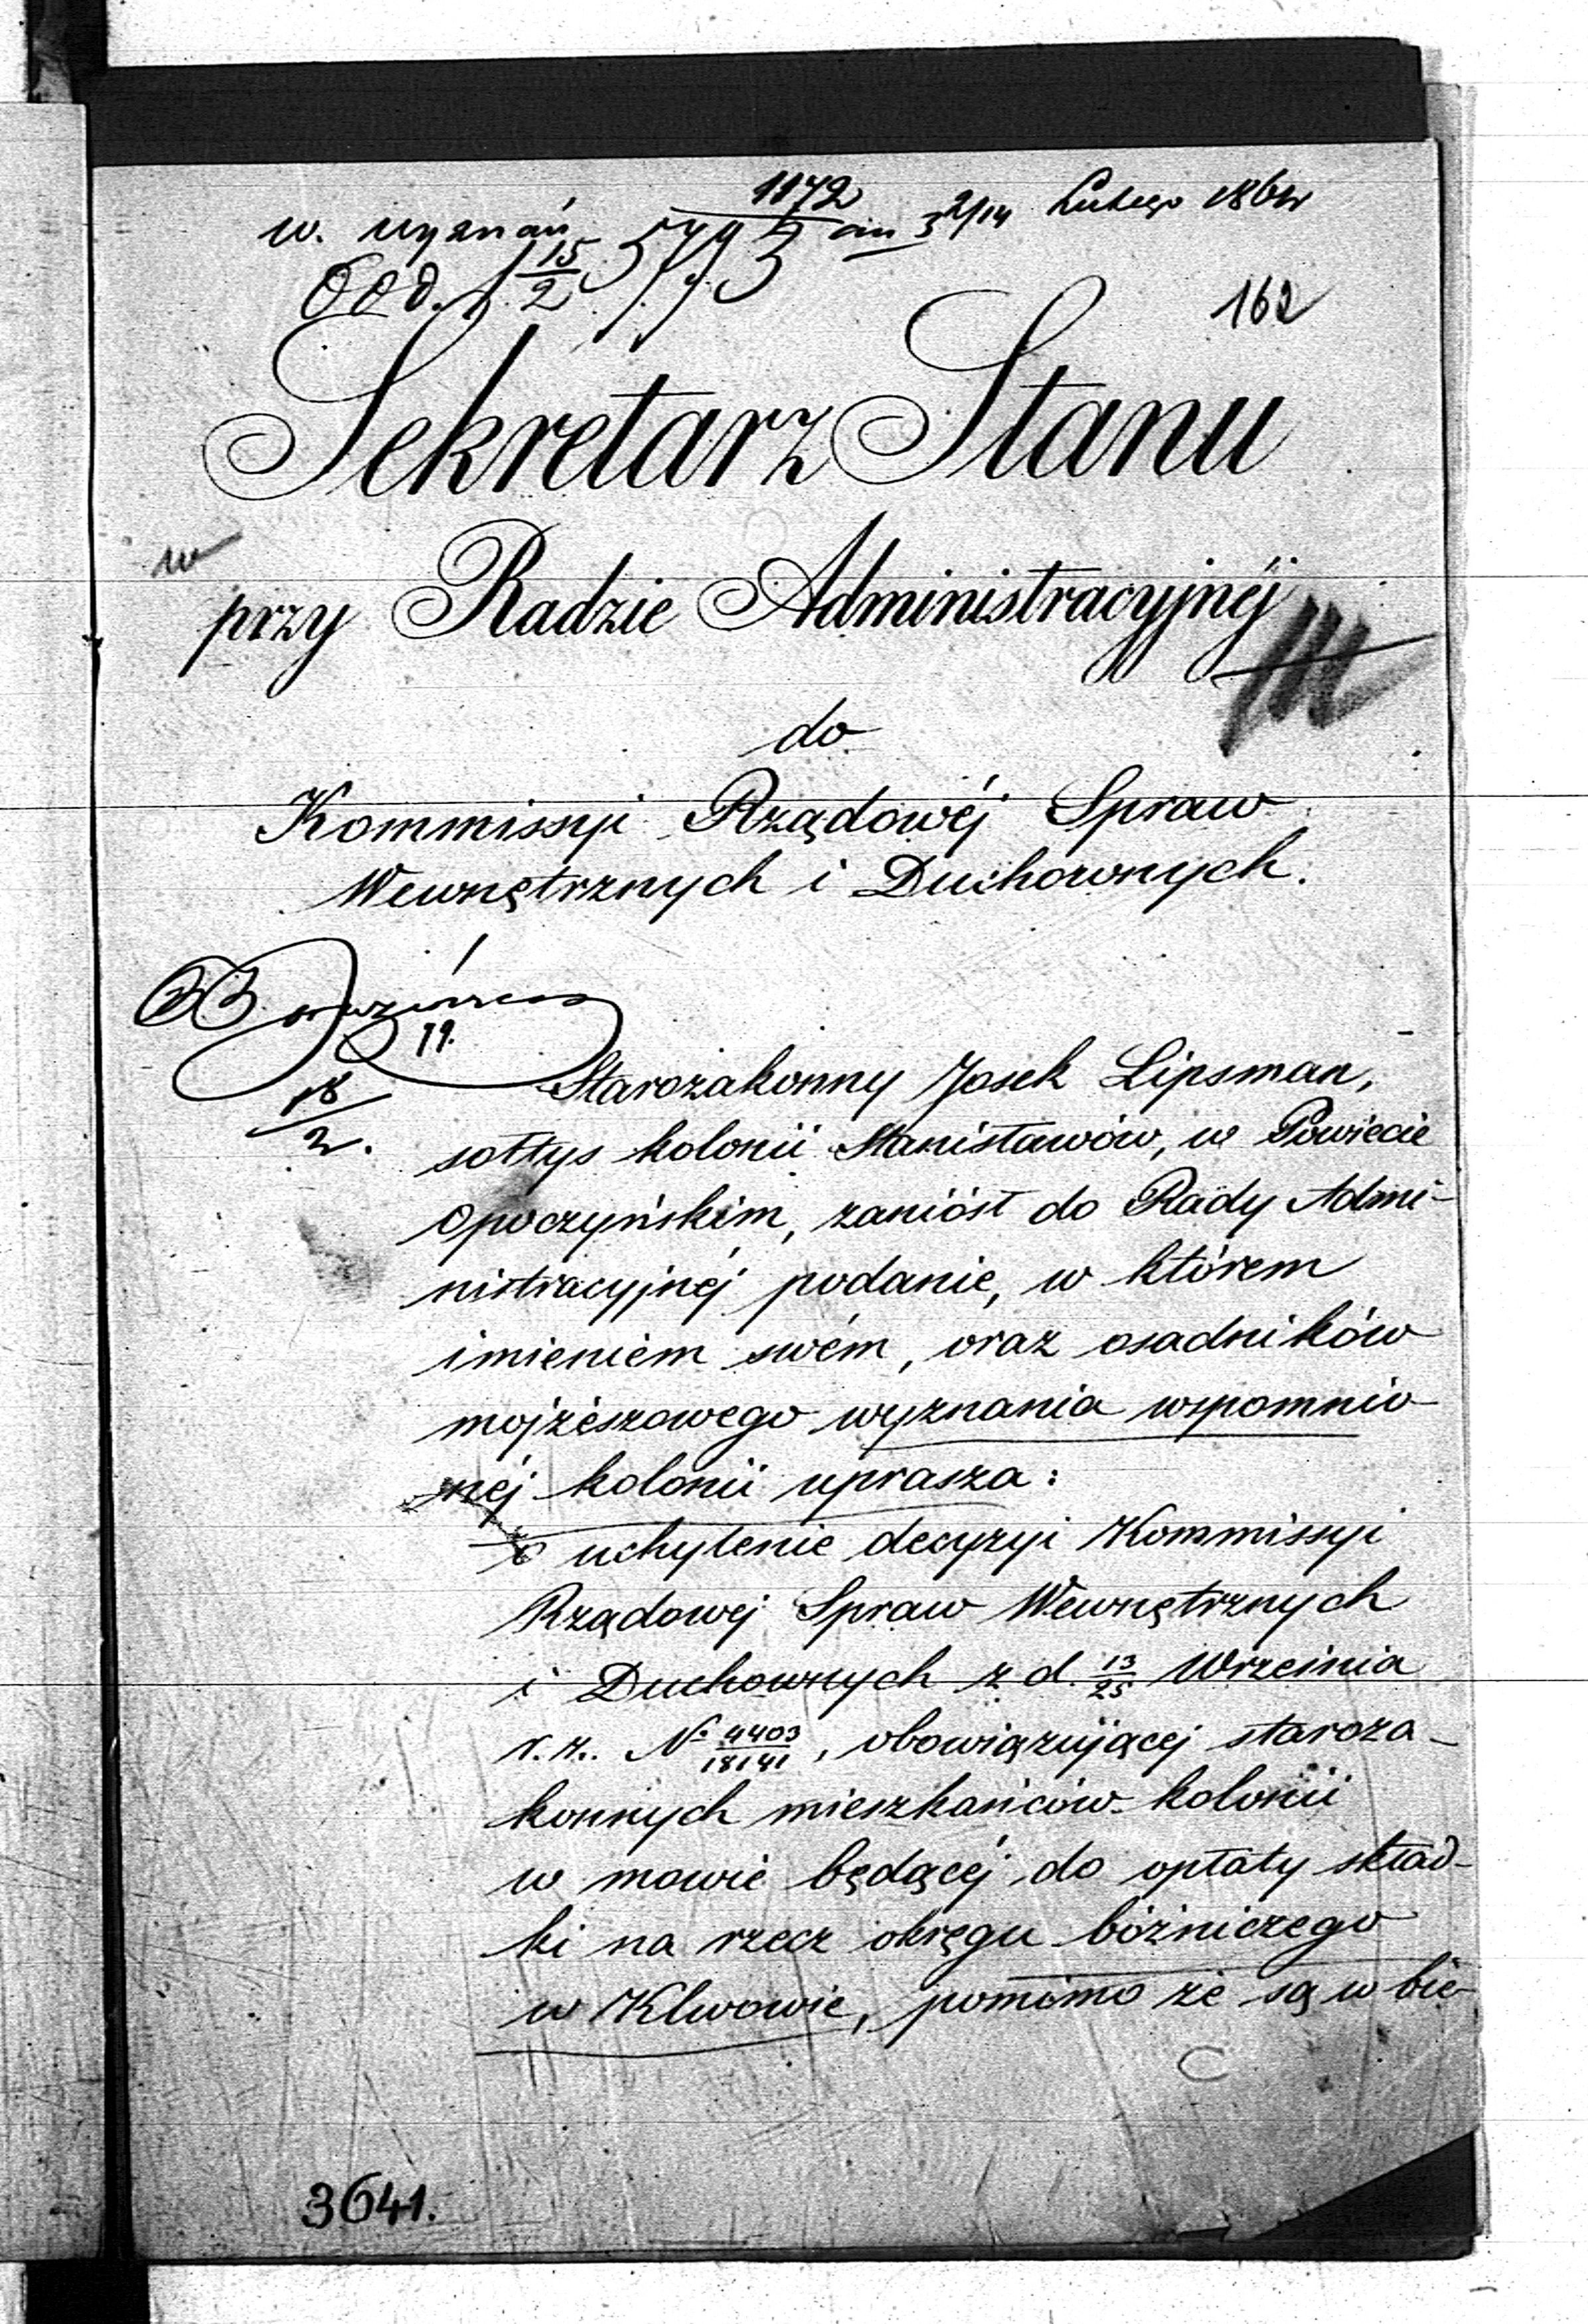 1172
w. wyznań 5793 dn 2/14 Lutego 1864
Odd. 15/2
162
Sekretarz Stanu
w
przy Radzie Administracyjnéj
do
Kommissyi Rządowéj Spraw
Wewnętrznych i Duchownych.
19.
18/2.
Starozakonny Josek Lipsman,
sołtys kolonii Stanisławów, w Powiecie
Opoczyńskim, zaniósł do Rady Admi-
nistracyjnéj podanie, w którem
imieniem swém, oraz osadników
mojżeszowego wyznania wspomnio-
néj kolonii uprasza:
o uchylenie decyzyi Kommissyi
Rządowej Spraw Wewnętrznych
i Duchownych z d. 13/25 Września
r. z. No 4403/18141, obowiązującej staroza-
konnych mieszkańców kolonii
w mowie będącéj do opłaty skład-
ki na rzecz okręgu bóżniczego
w Klwowie, pomimo że są w bie-
3641.